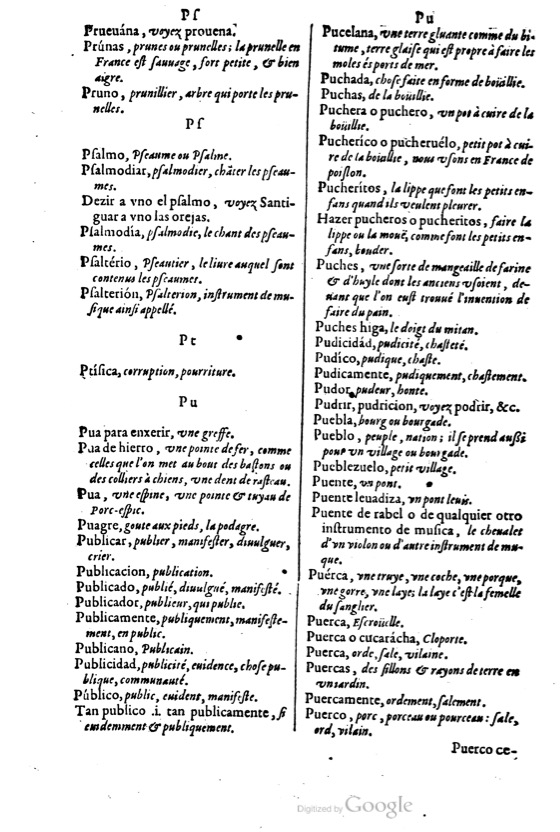 Pſ
Prueuána, voyez prouena.
Prúnas, prunes ou prunelles; la prunelle en
France eſt ſauuage, fort petite, & bien
aigre.
Pruno, prunillier, arbre qui porte les pru-
nelles.
Pſ
Pſalmo, Pſeaume ou Pſalme.
Pſalmodiar, pſalmodier, chāter les pſeau-
mes.
Dezir a vno el pſalmo, voyez Santi-
guar a vno las orejas.
Pſalmodía, pſalmodie, le chant des pſeau-
mes.
Pſaltério, Pſeautier, le liure auquel ſont
contenus les pſeaumes.
Pſalterión, Pſalterion, inſtrument de mu-
ſique ainſi appellé.
Pt
Ptíſica, corruption, pourriture.
Pu
Pua para enxerir, vne greffe.
Pua de hierro, vne pointe de fer, comme
celles que l'on met au bout des baſtons ou
des colliers à chiens, vne dent de raſteau.
Pua, vne eſpine, vne pointe & tuyau de
Porc-eſpic.
Puagre, goute aux pieds, la podagre.
Publicar, publier, manifeſter, diuulguer,
crier.
Publicacion, publication.
Publicado, publié, diuulgué, manifeſté.
Publicador, publieur, qui publie.
Publicamente, publiquement, manifeſte-
ment, en public.
Publicano, Publicain.
Publicidad, publicité, euidence, choſe pu-
blique, communauté.
Público, public, euident, manifeſte.
Tan publico .i. tan publicamente, ſi
euidemment & publiquement.
Pu
Pucelana, vne terre gluante comme du bi-
tume, terre glaiſe qui eſt propre à faire les
moles és ports de mer.
Puchada, choſe faite en forme de boüillie.
Puchas, de la boüillie.
Puchera o puchero, vn pot à cuire de la
boüillie.
Pucherico o pucheruélo, petit pot à cui-
re de la boüillie, nous vſons en France de
poiſlon.
Pucheritos, la lippe que font les petits en-
fans quand ils veulent pleurer.
Hazer pucheros o pucheritos, faire la
lippe ou la mouë, comme font les petits en-
fans, bouder.
Puches, vne ſorte de mangeaille de farine
& d'huyle dont les anciens vſoient, de-
uant que l'on euſt trouué l'inuention de
faire du pain.
Puches higa, le doigt du mitan.
Pudicidád, pudicité, chaſteté.
Pudíco, pudique, chaſte.
Pudicamente, pudiquement, chaſtement.
Pudor, pudeur, honte.
Pudrir, pudricion, voyez podrir, &c.
Puebla, bourg ou bourgade.
Pueblo, peuple, nation; il ſe prend außi
pour vn village ou bourgade.
Pueblezuelo, petit village.
Puente, vn pont.
Puente leuadiza, vn pont leuis.
Puente de rabel o de qualquier otro
inſtrumento de muſica, le cheualet
d'vn violon ou d'autre inſtrument de mu-
que.
Puérca, vne truye, vne coche, vne porque,
vne gorre, vne laye; la laye c'eſt la femelle
du ſanglier.
Puerca, Eſcroüelle.
Puerca o cucarácha, Cloporte.
Puerca, orde, ſale, vilaine.
Puercas, des ſillons & rayons de terre en
vn iardin.
Puercamente, ordement, ſalement.
Puerco, porc, porceau ou pourceau: ſale,
ord, vilain.
Puerco ce-
Digitized by Google